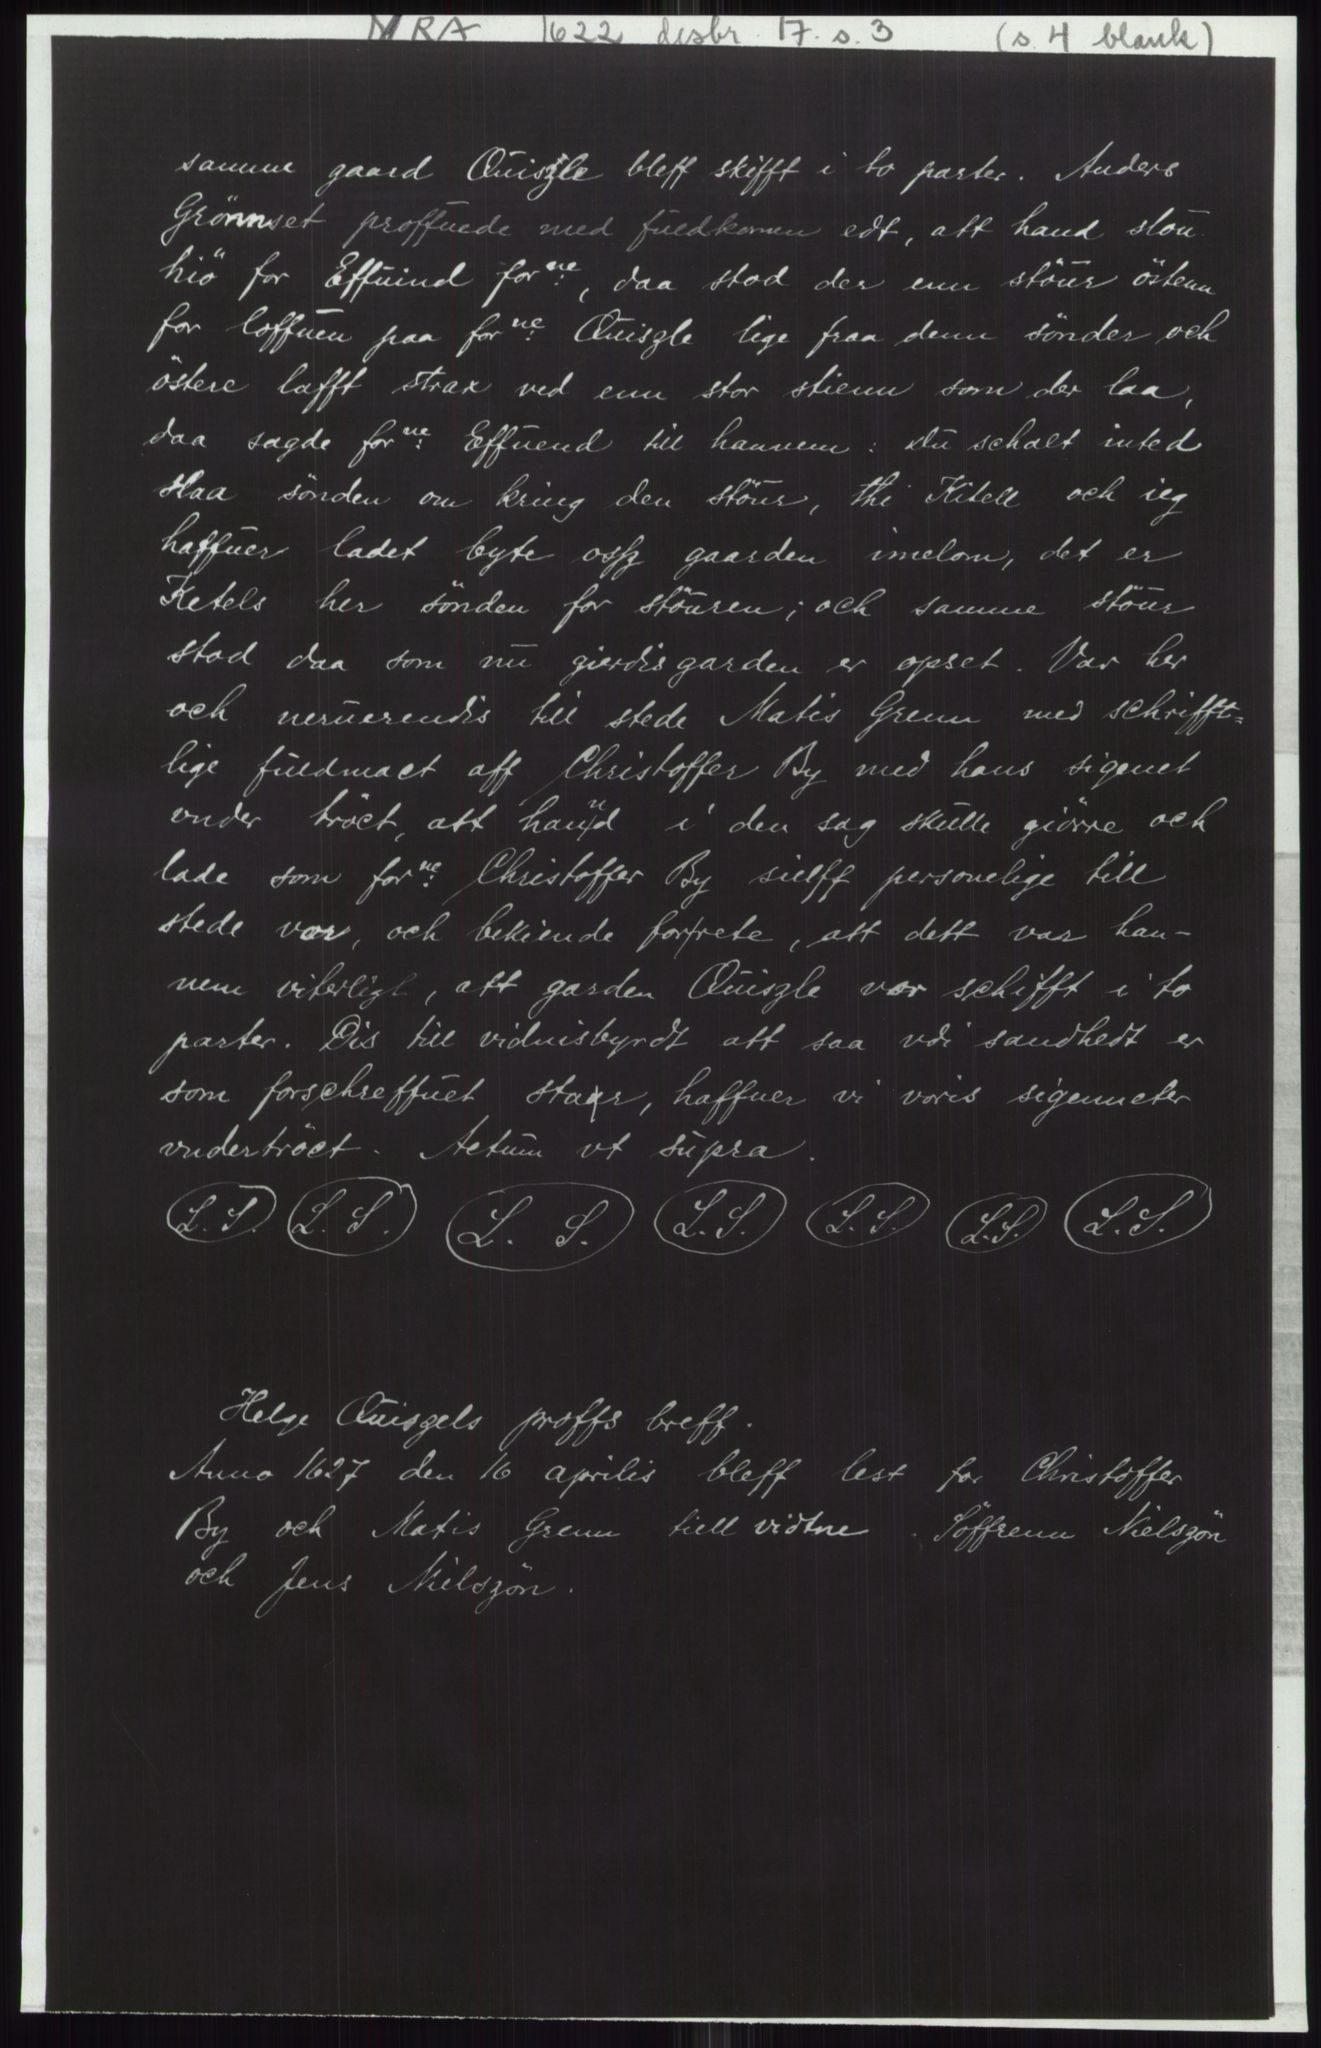 NRA 1622 desbr. 17. s. 3 (s. 4 blank)
samme gaard Quiszle bleff skifft i to parter. Anders
Grönnset proffuede med fuldkomen edt, att hand slou
hiö for Effuind forne:, daa stod der enn stöur östenn
for loffuen paa forne: Quiszle lige fraa denn sönder och
östere lafft strax ved enn stor stienn som der laa,
daa sagde forne: Effuend till hannem: Du schalt inted
slaa sönden om kring den stöur, thi Kitell och ieg
haffuer ladet byte osz gaarden imelom, det er
Ketels her sönden for stöuren; och samme stöur
stod daa som nu gierdisgarden er opset. Var her
och neruerendis till stede Matis Grenn med schrifft=
lige fuldmact aff Christoffer By med hans signet
vnder tröct, att hannd i den sag skulle giörre och
lade som forne: Christoffer By sielff personelige till
stede var, och bekiende forrete, att dett var han-
nem viterligt, att garden Quiszle var schifft i to
parter. Dis till vidnisbyrdt att saa vdi sandhedt er
som forschreffuet staar, haffuer vi voris signneter
vndertröct. Actum vt supra.
L.S. L.S. L. S. L.S. L.S. L.S. L.S.
Helge Quiszels proffs breff.
Anno 1627 den 16 aprilis bleff lest for Christoffer
By och Matis Grenn till vidtne. Söffrenn Nielszön
och Jens Nielszön.